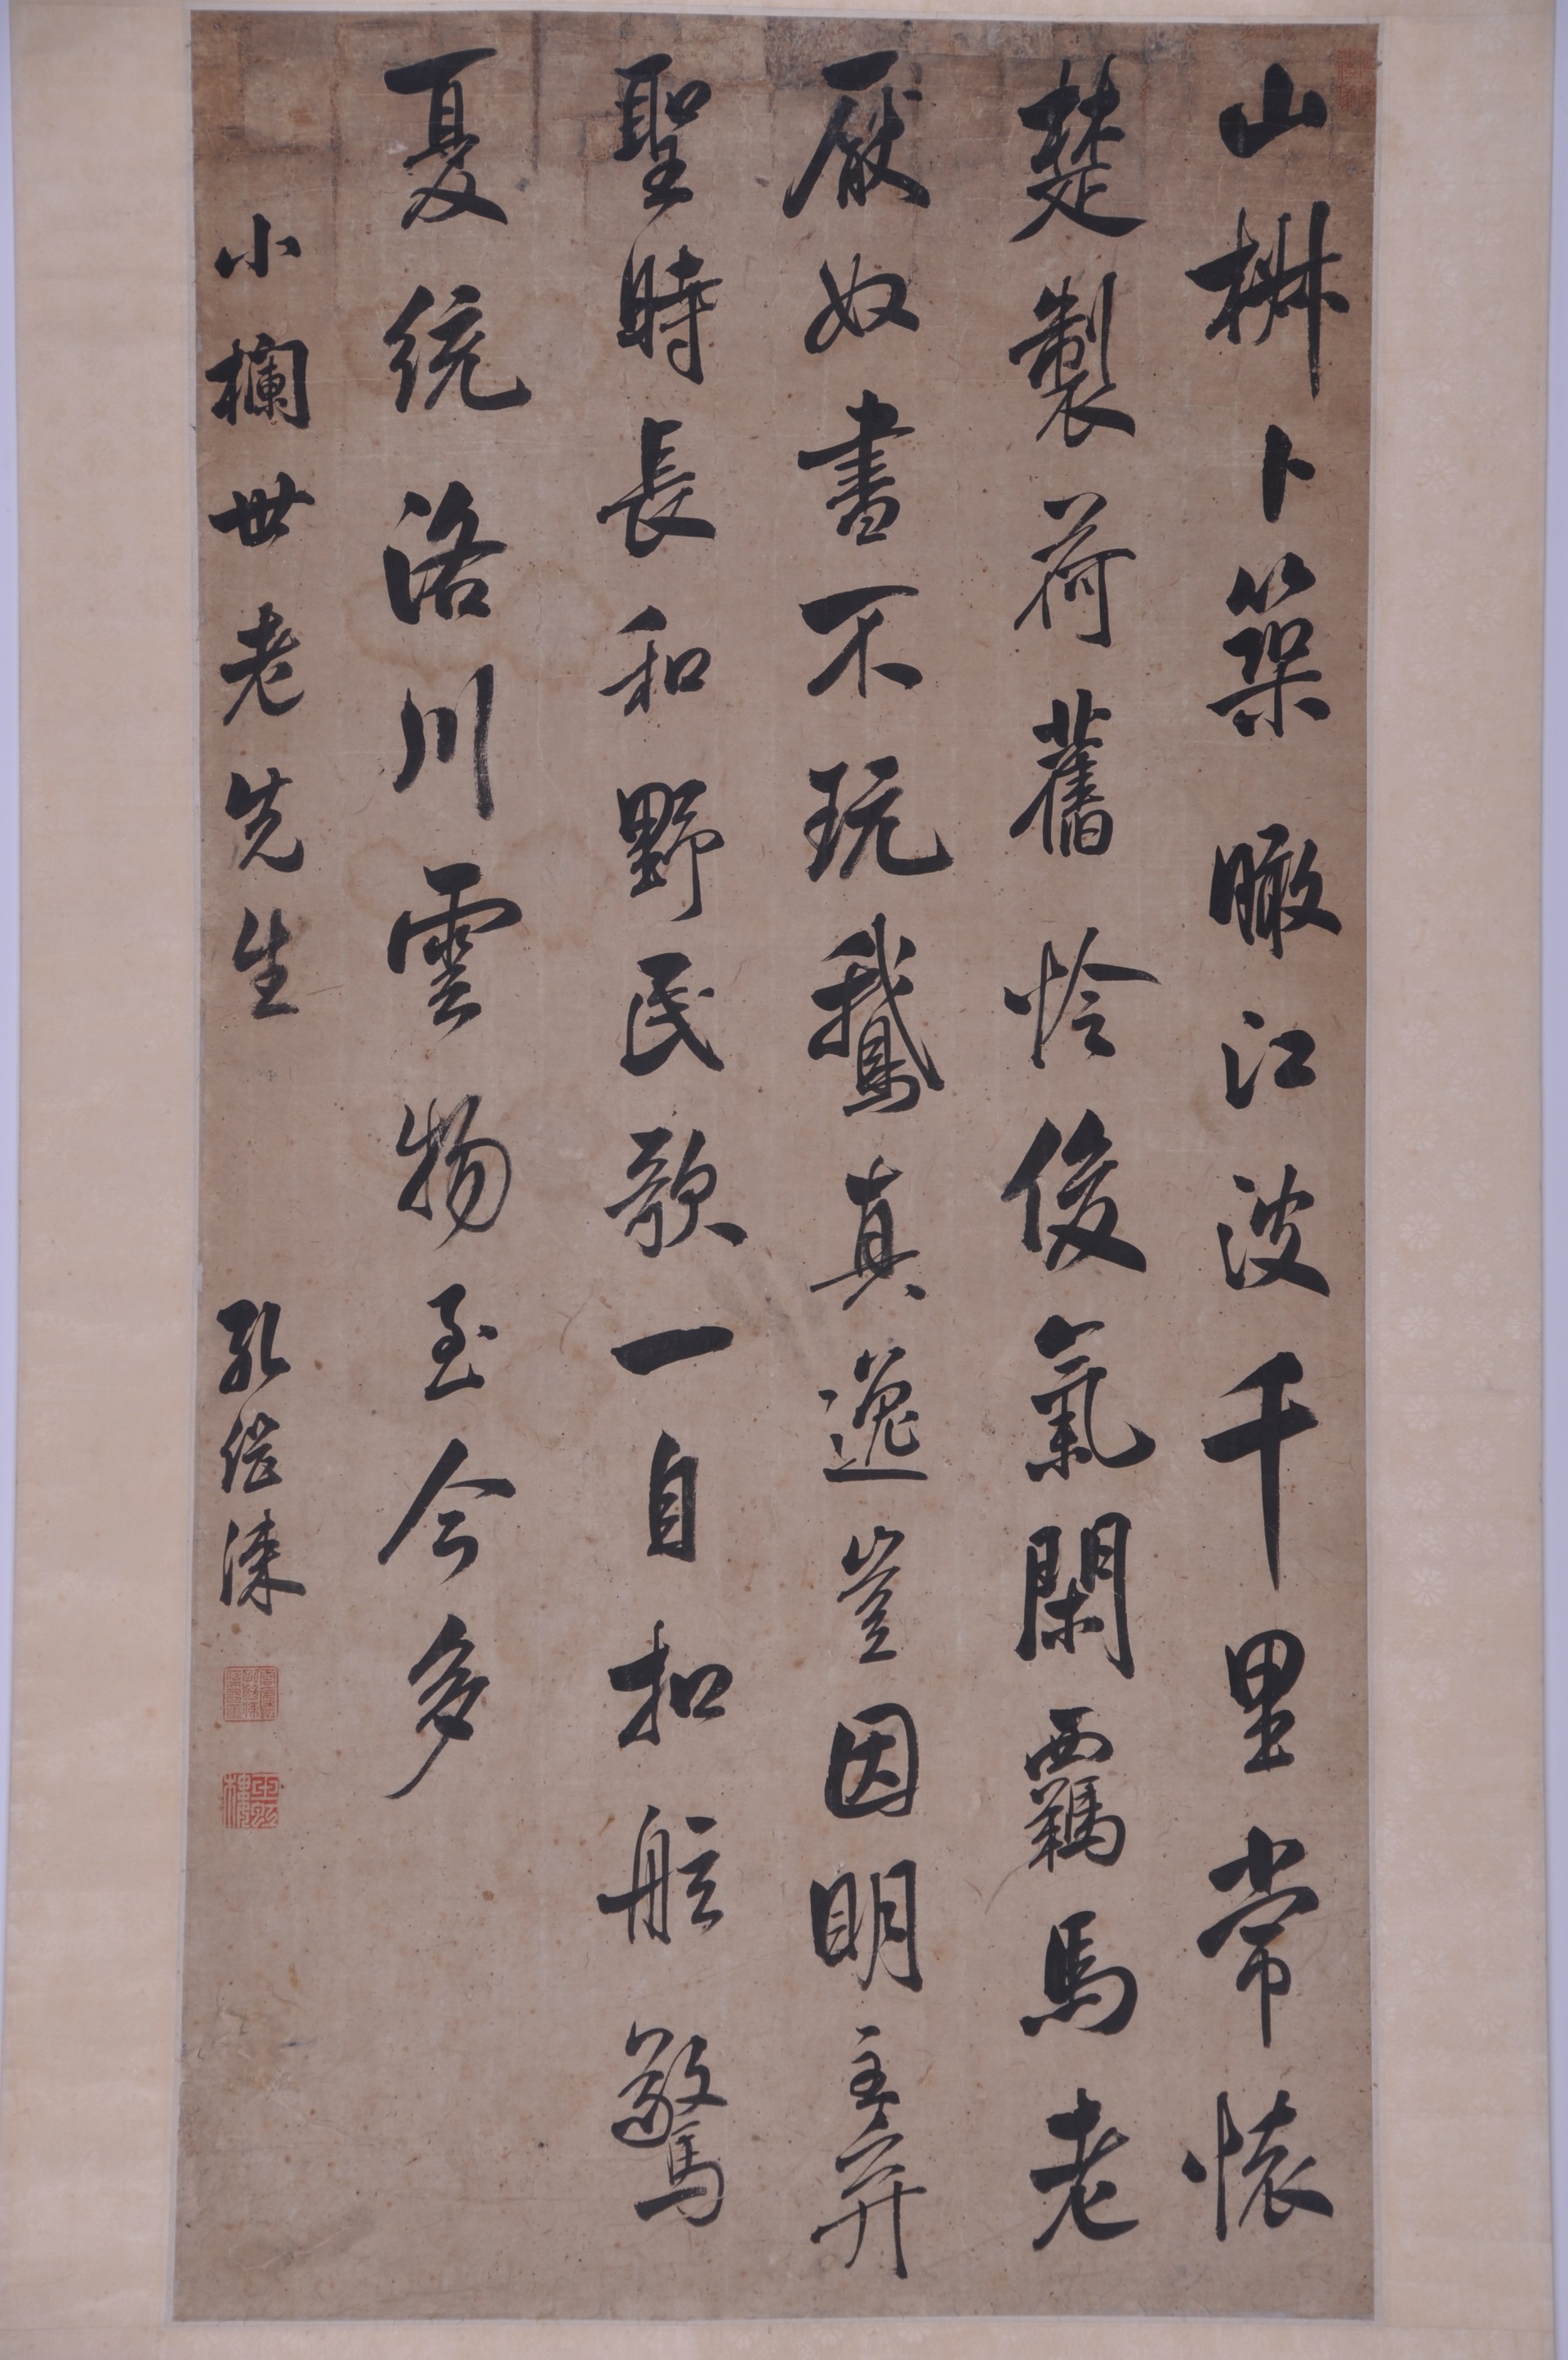 山椒卜築瞰江波千里常懷
楚製荷舊怜俊氣閑羈馬老
厭奴書不玩鵝真逸豈因明主弃
聖時長和野民歌一自扣舷驚
夏統洛川雲物至今多
小欄世老先生
孔继涑